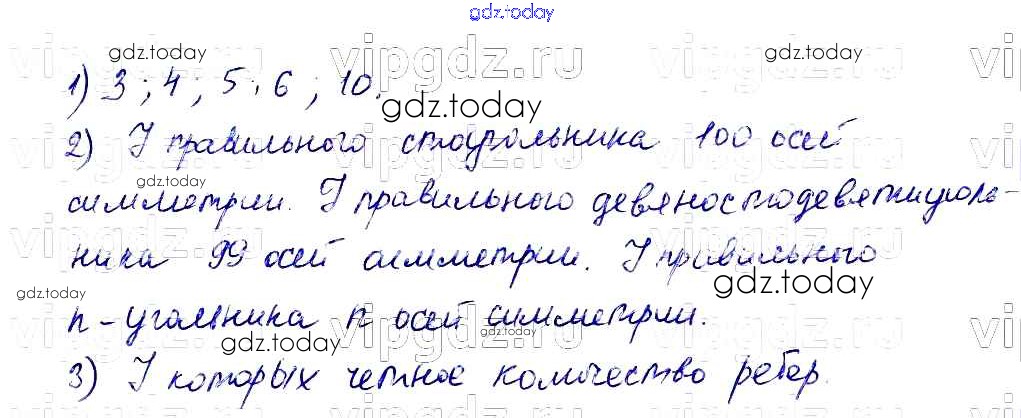 gdz.today
vipgdz.ru vipgdz.ru vipgdz.ru
gdz.today gdz.today
1) 3 ; 4 ; 5 ; 6 ; 10.
gdz.today
2) У правильного стоугольника 100 осей
gdz.today
симметрии. У правильного девяностодевятиуголь-
ника 99 осей симметрии. У правильного
gdz.today gdz.today
n-угольника n осей симметрии.
gdz.today gdz.today
3) У которых четное количество ребер.